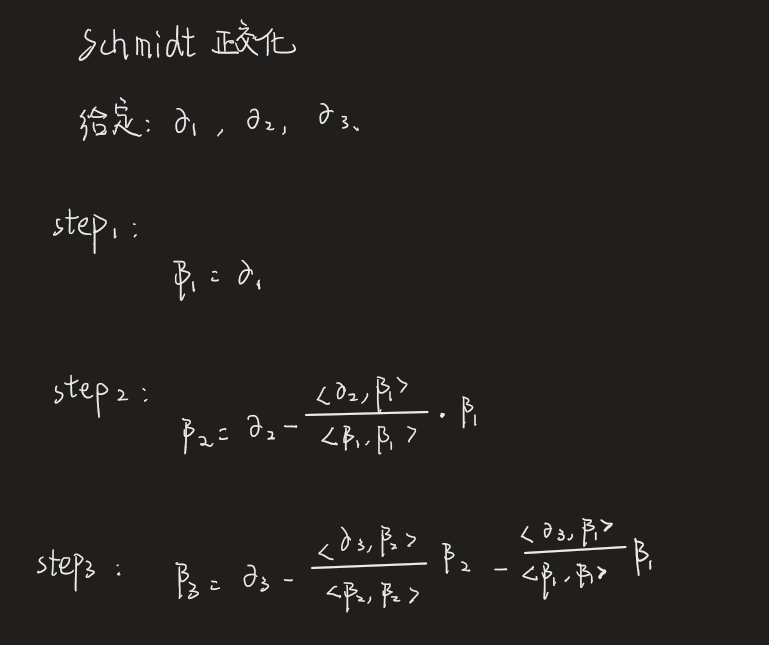 Schmidt 正交化
给定: ∂₁ , ∂₂, ∂₃、
step₁ :
β₁ = ∂₁
step₂ :
β₂ = ∂₂ - <∂₂, β₁> / <β₁, β₁> · β₁
step₃ :
β₃ = ∂₃ - <∂₃, β₂> / <β₂, β₂> β₂ - <∂₃, β₁> / <β₁, β₁> β₁